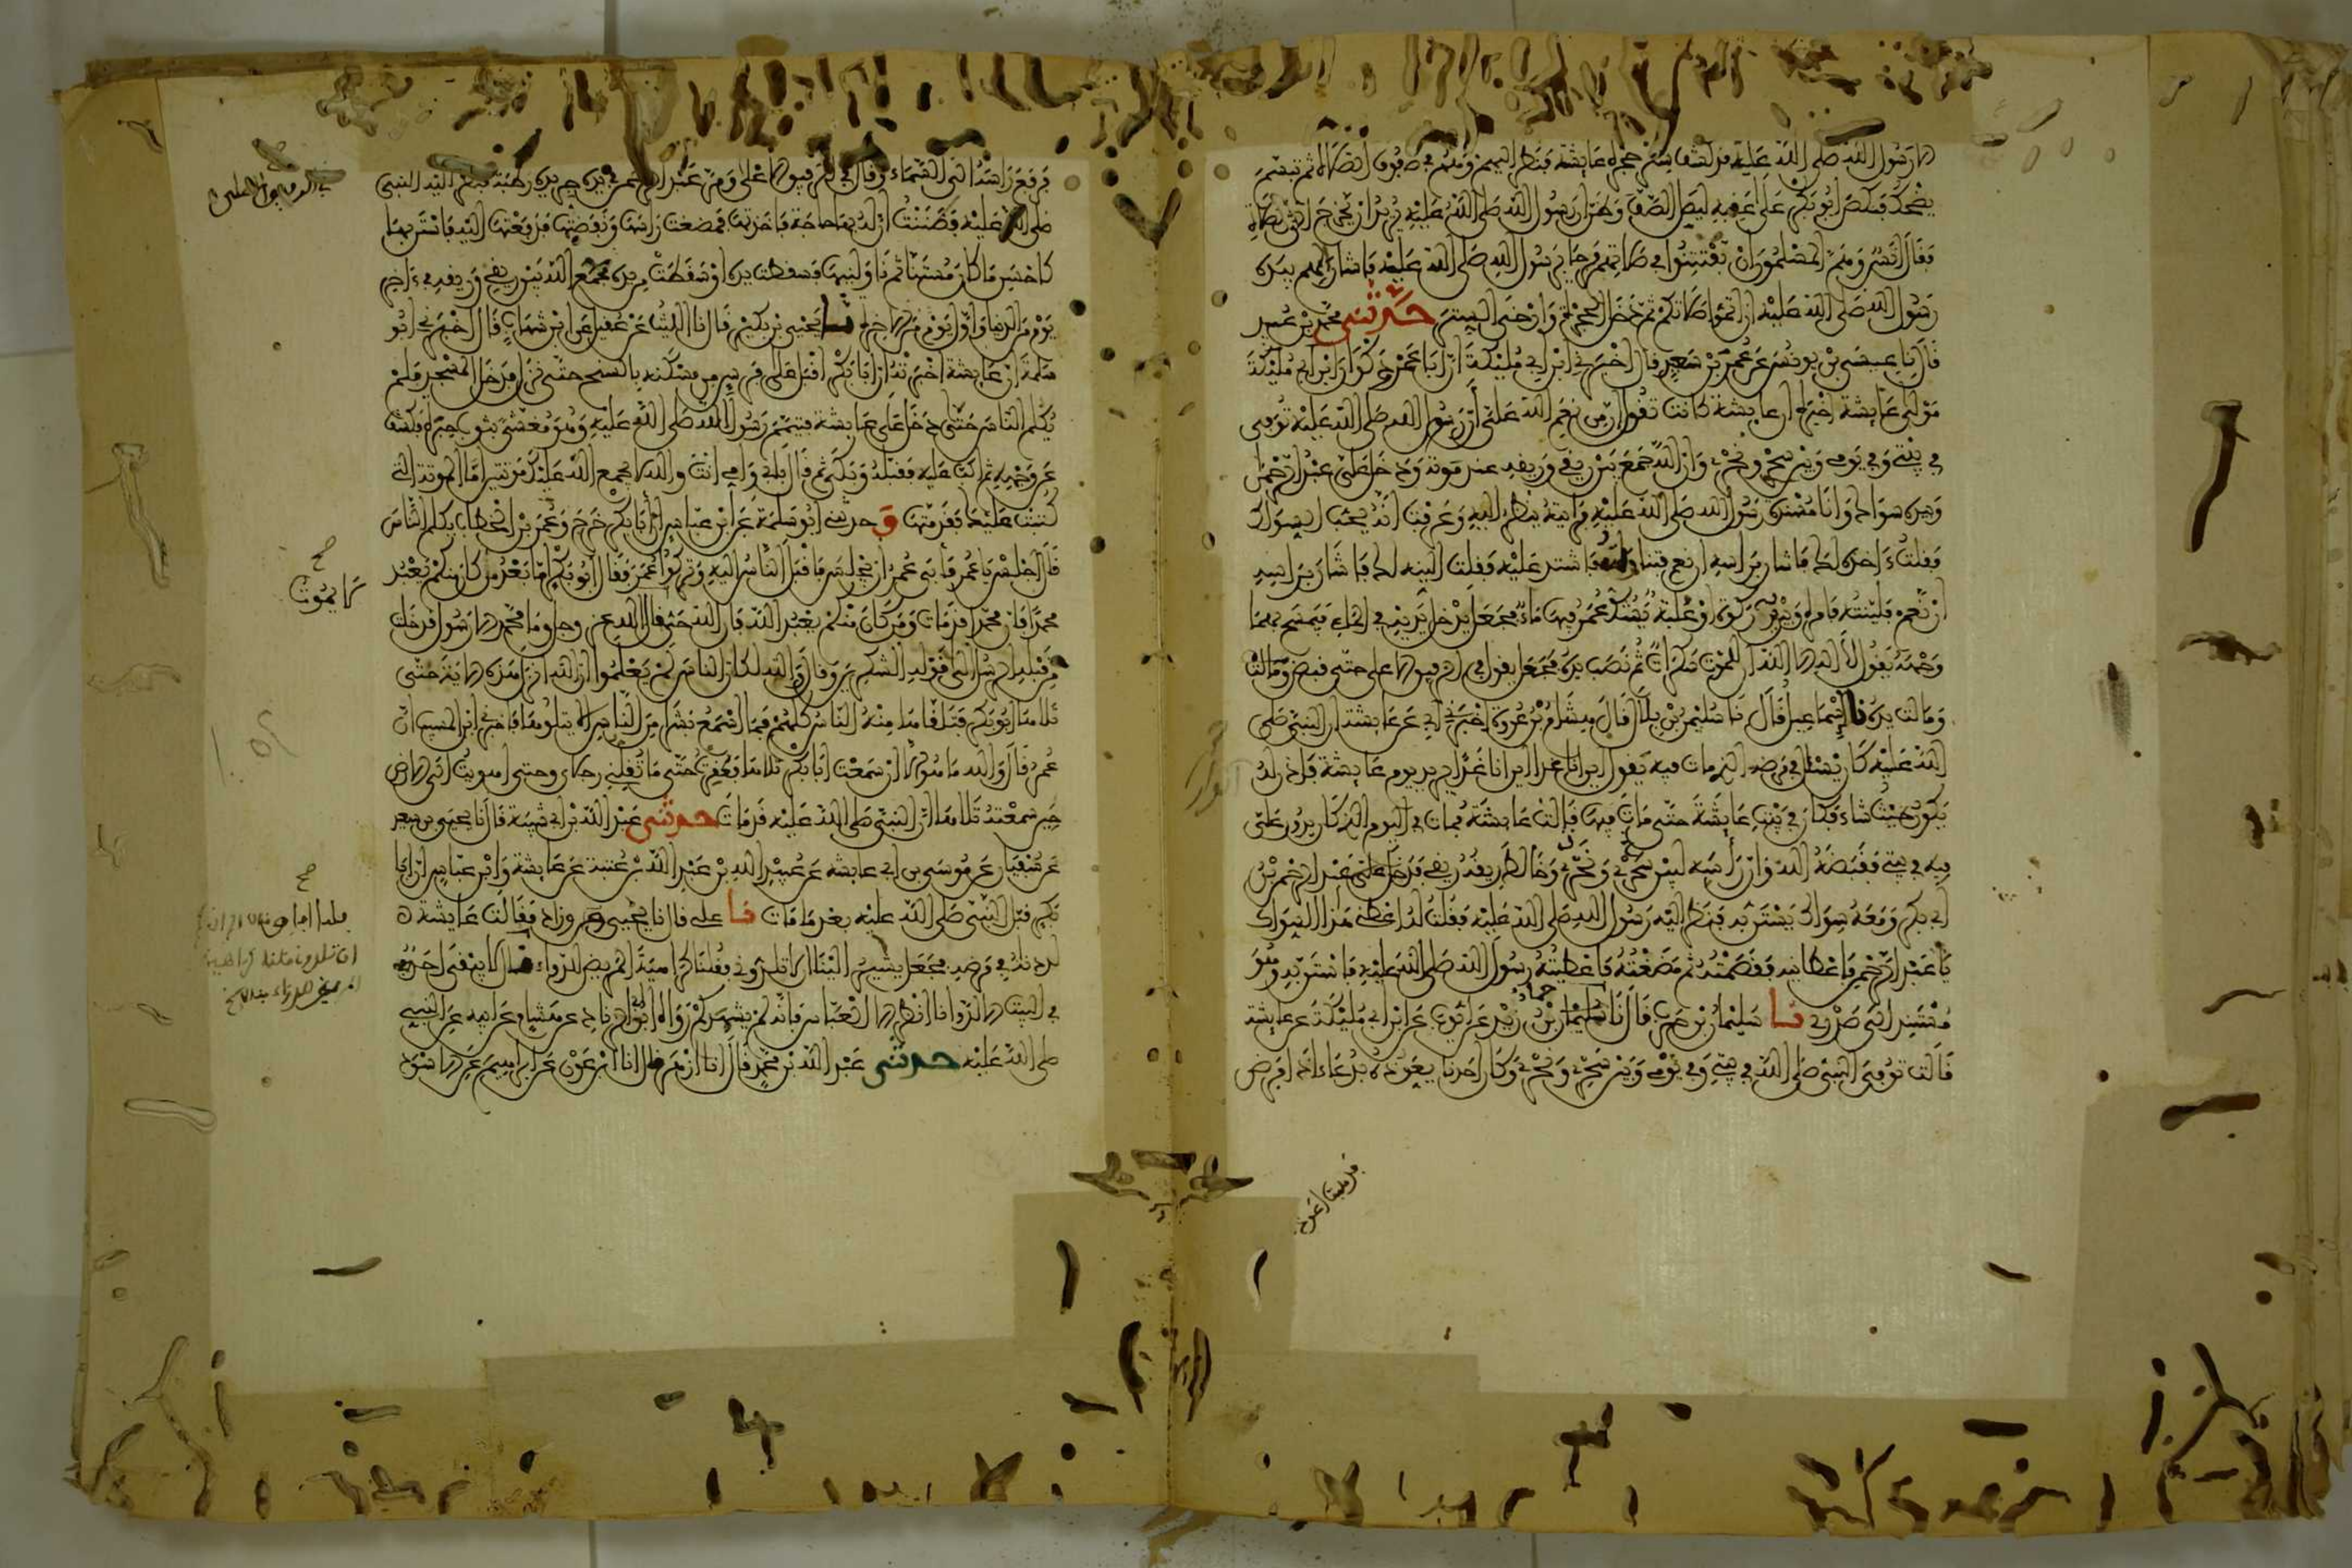 الا رسول الله صلى الله عليه قد كشف ستر حجرة عايشة فنظر اليهم وهم في صفوف الصلاة ثم تبسم
يضحك فنكص ابو بكر على عقبيه ليصل الصف وظن ان رسول الله صلى الله عليه يريد ان يخرج الى الصلاة
فقال انس وهم المسلمون ان يفتتنوا في صلاتهم فرحا برسول الله صلى الله عليه فاشار اليهم بيده
رسول الله صلى الله عليه ان اتموا صلاتكم ثم دخل الحجرة وارخى الستر حدثني محمد بن عبيد
قال نا عيسى بن يونس عن عمر بن سعيد قال اخبرني ابن ابي مليكة ان ابا عمرو ذكوان
مولى عايشة اخبره ان عايشة كانت تقول ان من نعم الله على ان رسول الله صلى الله عليه توفي
في بيتي وفي يومي وبين سحري ونحري وان الله جمع بين ريقي وريقه عند موته ودخل على عبد الرحمن
وبيده سواك وانا مسندة رسول الله صلى الله عليه فرايته ينظر اليه وعرفت انه يحب السواك
فقلت ءاخذه لك فاشار براسه ان نعم فتناولته فاشتد عليه فقلت الينه لك فاشار براسه
ان نعم فلينته فامره وبين يديه ركوة او علبة يشك عمر فيها ماء فجعل يدخل يديه في الماء فيمسح بهما
وجهه يقول لا اله الا الله ان للموت سكرات ثم نصب يده فجعل يقول في الرفيق الاعلى حتى قبض ومالت
ومالت يده نا اسماعيل قال نا سليمن بن بلال قال هشام بن عروة اخبرني ابي عن عايشة ان النبي صلى
الله عليه كان يسئل في مرضه الذي مات فيه يقول اين انا غدا اين انا غدا يريد يوم عايشة فاذن له
يكون حيث شاء فكان في بيت عايشة حتى مات فيها قالت عايشة فمات في اليوم الذي كان يدور علي
فيه في بيتي فقبضه الله وان راسه لبين سحري ونحري وخالط ريقه ريقي دخل علي عبد الرحمن بن
ابي بكر ومعه سواك يستن به فنظر اليه رسول الله صلى الله عليه فقلت له اعطني هذا السواك
يا عبد الرحمن فاعطانيه فقضمته ثم مضغته فاعطيته رسول الله صلى الله عليه فاستن به وهو
مستند الى صدري نا سليمن بن حرب قال نا حماد بن زيد عن ايوب عن ابن ابي مليكة عن عايشة
قالت توفي النبي صلى الله في بيتي وفي يومي وبين سحري ونحري وكان احدنا يعوذه بدعاء اذا مرض
فذهبت اعوذه
فرفع راسه الى السماء وقال في الرفيق الاعلى ومر عبد الرحمن وفي يده جريدة رطبة فنظر اليه النبي
صلى الله عليه فظننت ان له بها حاجة فاخذتها فمضغت راسها ونفضتها فدفعتها اليه فاستن بها
كاحسن ما كان مستنا ثم ناولنيها فسقطت يده او سقطت من يده فجمع الله بين ريقي وريقه في ءاخر
يوم من الدنيا واول يوم من الاخرة نا يحيى بن بكير قال نا الليث عن عقيل عن ابن شهاب قال اخبرني ابو
سلمة ان عايشة اخبرته ان ابا بكر اقبل على فرس من مسكنه بالسنح حتى نزل فدخل المسجد فلم
يكلم الناس حتى دخل على عايشة فتيمم رسول الله صلى الله عليه وهو مغشى بثوب حبرة فكشف
عن وجهه ثم اكب عليه فقبله وبكى ثم قال بابي وامي انت والله لا يجمع الله عليك موتتين اما الموتة التي
كتبت عليك فقد متها و حدثني ابو سلمة عن ابن عباس ان ابا بكر خرج وعمر بن الخطاب يكلم الناس
قال اجلس يا عمر فابى عمر ان يجلس فاقبل الناس اليه وتركوا عمر فقال ابو بكر اما بعد من كان منكم يعبد
لا يموت
محمدا فان محمدا قد مات ومن كان منكم يعبد الله فان الله حي قال الله عز وجل وما محمد الا رسول قد خلت
من قبله الرسل الى قوله الشاكرين وقال والله لكان الناس لم يعلموا ان الله انزل هذه الاية حتى
تلاها ابو بكر فتلقاها منه الناس كلهم فما اسمع بشرا من الناس الا يتلوها فاخبرني ابن المسيب ان
عمر قال والله ما هو الا ان سمعت ابا بكر تلاها فعقرت حتى ما تقلني رجلاي وحتى اهويت الى الارض
حين سمعته تلاها ان النبي صلى الله عليه قد مات حدثني عبد الله بن ابي شيبة قال نا يحيى بن سعيد
عن سفيان عن موسى بن ابي عايشة عن عبيد الله بن عبد الله بن عتبة عن عايشة وابن عباس ان ابا
بكر قبل النبي صلى الله عليه بعد ما مات نا علي قال نا يحيى وزاد فقالت عايشة
لددناه في مرضه فجعل يشير الينا ان لا تلدوني فقلنا كراهية المريض للدواء فقال لا يبقى احد
في البيت الا لد وانا انظر الا العباس فانه لم يشهدكم رواه ابن ابي الزناد عن هشام عن ابيه عن النبي
صلى الله عليه حدثني عبد الله بن محمد قال انا ازهر قال انا ابن عون عن ابراهيم عن الاسود